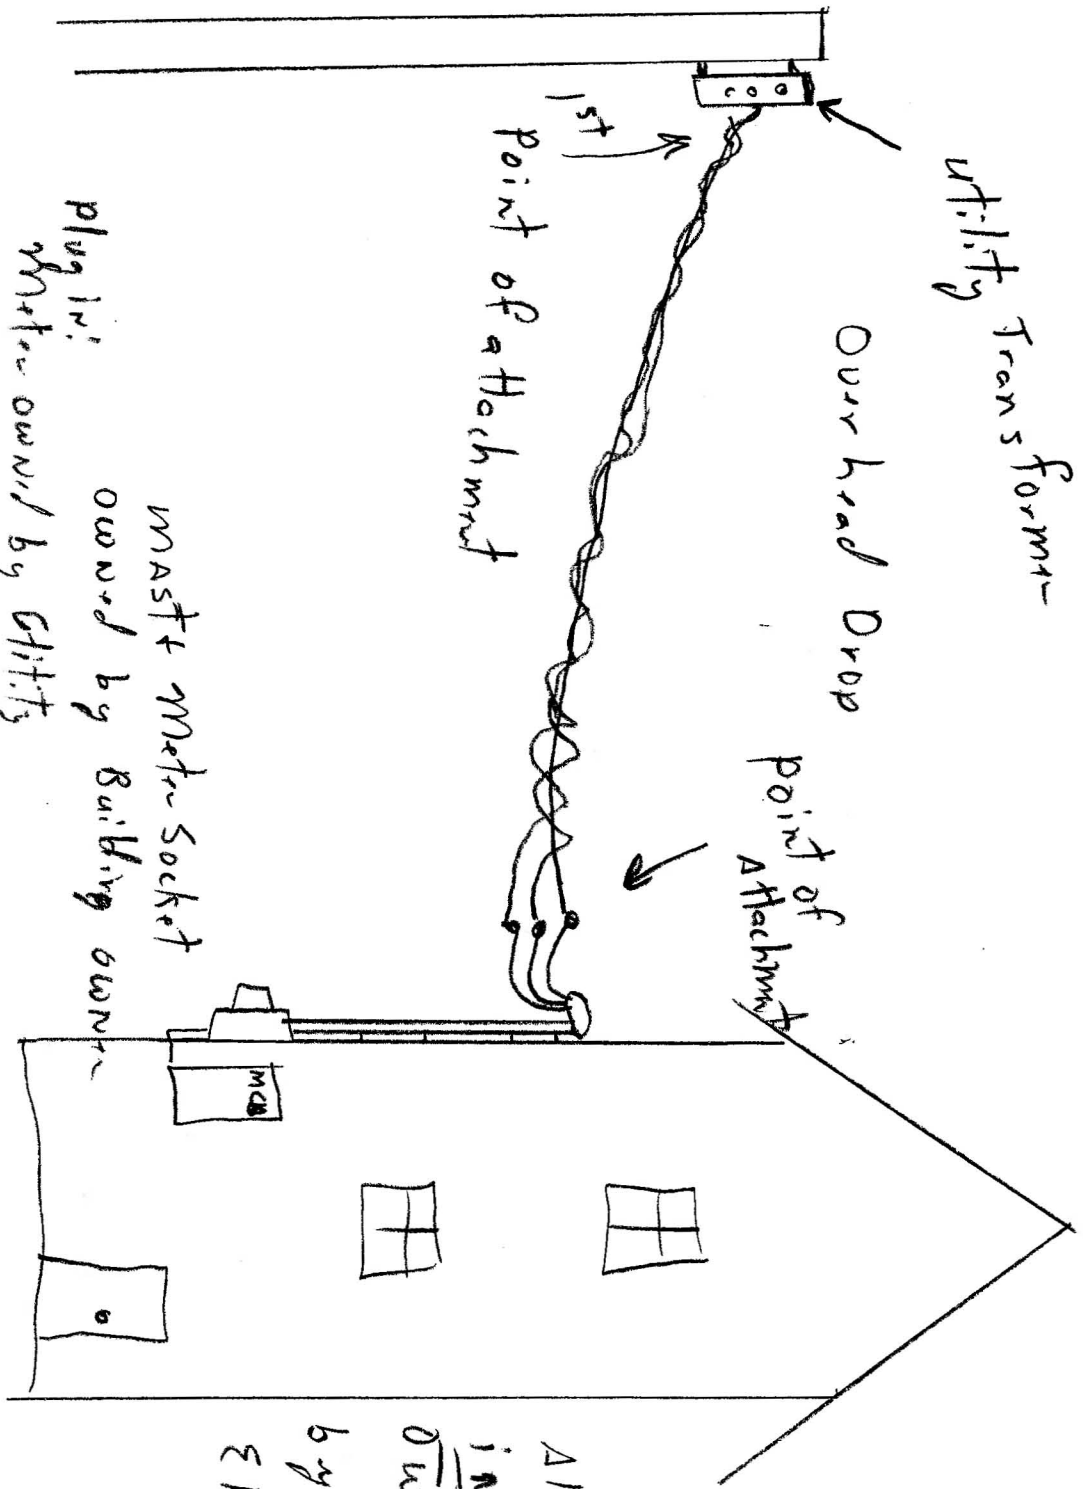 Utility Transformer
Overhead Drop
Point of
Attachment
1st
Point of attachment
Mast & Meter Socket
owned by Building owner
Plug in:
Meter owned by Utility
MCB
in
by